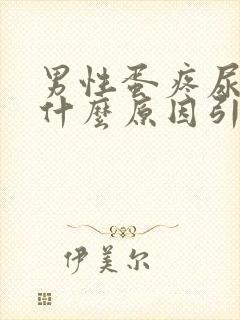 男性蛋疼尿
什麼原因引
伊美尔